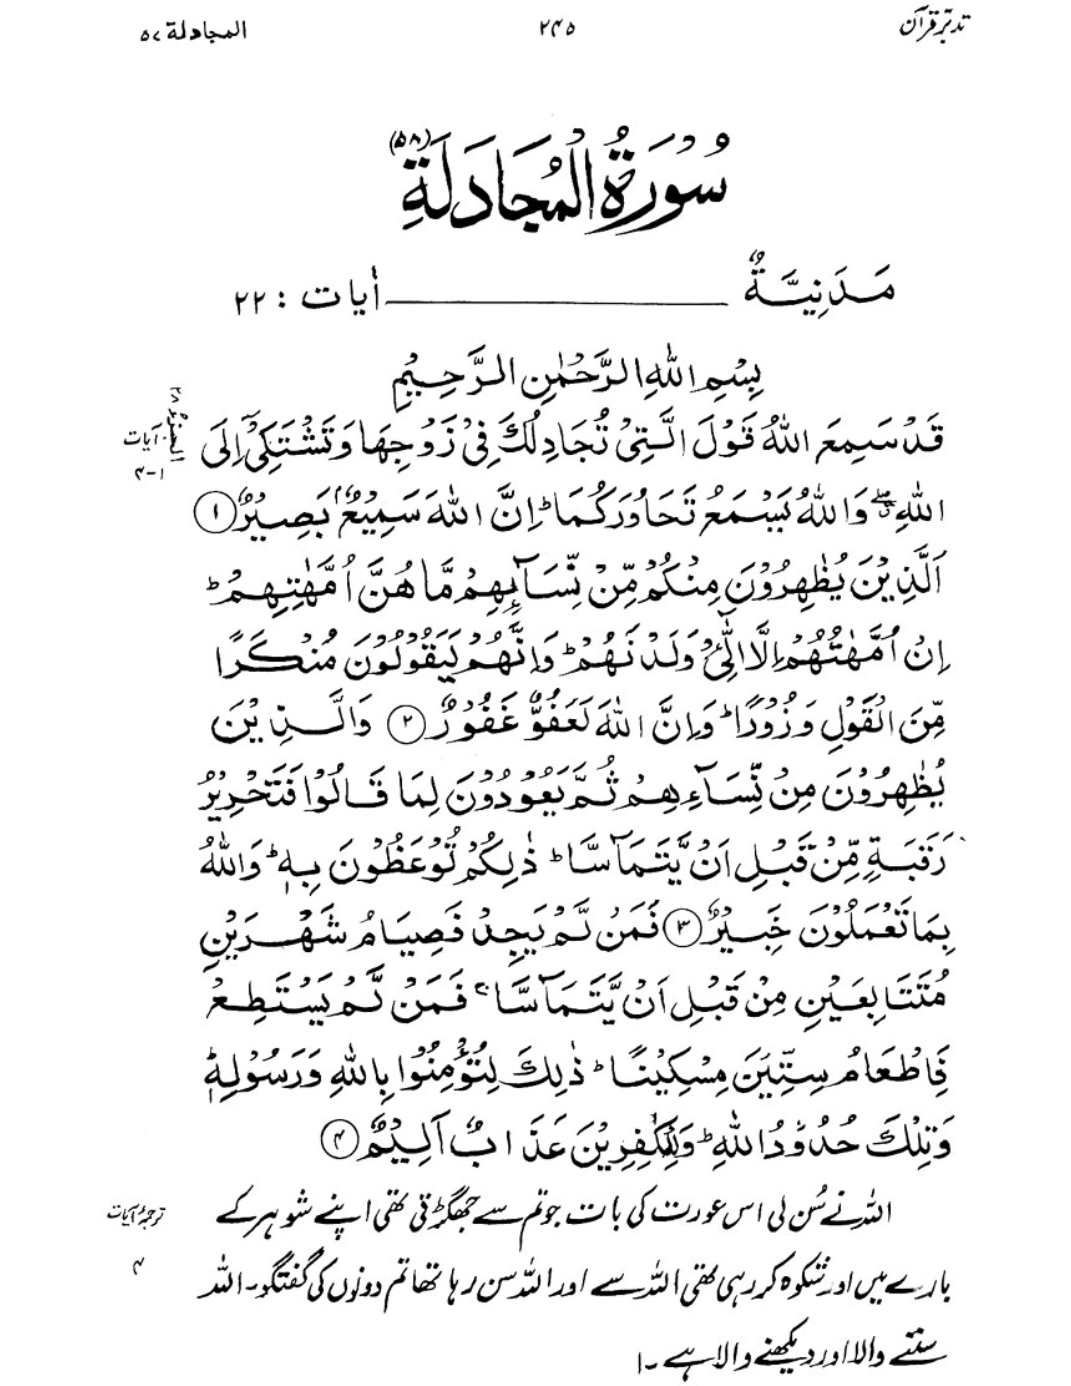 تدبّرِ قرآن ۲۴۵ المجادلة ۵۷
سُوۡرَةُ الۡمُجَادَلَةِ (۵۸)
مَدَنِيَّةٌ اٰيات : ۲۲
بِسۡمِ اللّٰهِ الرَّحۡمٰنِ الرَّحِيۡمِ
قَدۡ سَمِعَ اللّٰهُ قَوۡلَ الَّتِىۡ تُجَادِلُكَ فِىۡ زَوۡجِهَا وَتَشۡتَكِىۡۤ اِلَى
آيات
۱-۴
اللّٰهِ ۖ وَاللّٰهُ يَسۡمَعُ تَحَاوُرَكُمَا ؕ اِنَّ اللّٰهَ سَمِيۡعٌۢ بَصِيۡرٌ ۱
اَلَّذِيۡنَ يُظٰهِرُوۡنَ مِنۡكُمۡ مِّنۡ نِّسَآٮِٕهِمۡ مَّا هُنَّ اُمَّهٰتِهِمۡ ؕ
اِنۡ اُمَّهٰتُهُمۡ اِلَّا الّٰٓـِٔىۡ وَلَدۡنَهُمۡ ؕ وَاِنَّهُمۡ لَيَقُوۡلُوۡنَ مُنۡكَرًا
مِّنَ الۡقَوۡلِ وَزُوۡرًا ؕ وَاِنَّ اللّٰهَ لَعَفُوٌّ غَفُوۡرٌ ۲ وَالَّذِيۡنَ
يُظٰهِرُوۡنَ مِنۡ نِّسَآءِهِمۡ ثُمَّ يَعُوۡدُوۡنَ لِمَا قَالُوۡا فَتَحۡرِيۡرُ
رَقَبَةٍ مِّنۡ قَبۡلِ اَنۡ يَّتَمَآسَّا ؕ ذٰ لِكُمۡ تُوۡعَظُوۡنَ بِهٖ ؕ وَاللّٰهُ
بِمَا تَعۡمَلُوۡنَ خَبِيۡرٌ ۳ فَمَنۡ لَّمۡ يَجِدۡ فَصِيَامُ شَهۡرَيۡنِ
مُتَتَابِعَيۡنِ مِنۡ قَبۡلِ اَنۡ يَّتَمَآسَّا ۚ فَمَنۡ لَّمۡ يَسۡتَطِعۡ
فَاِطۡعَامُ سِتِّيۡنَ مِسۡكِيۡنًا ؕ ذٰلِكَ لِتُؤۡمِنُوۡا بِاللّٰهِ وَرَسُوۡلِهٖ ؕ
وَتِلۡكَ حُدُوۡدُ اللّٰهِ ؕ وَلِلۡكٰفِرِيۡنَ عَذَابٌ اَلِيۡمٌ ۴
اللہ نے سُن لی اس عورت کی بات جو تم سے جھگڑتی تھی اپنے شوہر کے
ترجمۂ آیات
۴
بارے میں اور شکوہ کر رہی تھی اللہ سے اور اللہ سن رہا تھا تم دونوں کی گفتگو۔ اللہ
سننے والا اور دیکھنے والا ہے۔ ۱